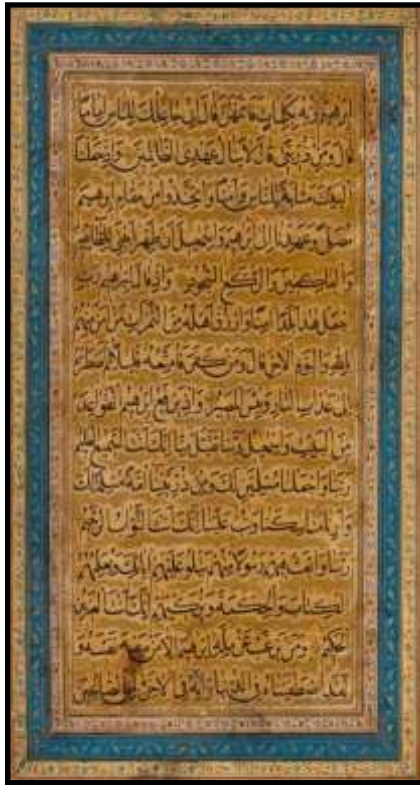 ابرهيم ربه بكلمات فاتمهن قال اني جاعلك للناس اماما
قال ومن ذريتي قال لا ينال عهدي الظالمين واذ جعلنا
البيت مثابة للناس وامنا واتخذوا من مقام ابرهيم
مصلى وعهدنا الى ابرهيم واسمعيل ان طهرا بيتي للطائفين
والعاكفين والركع السجود واذ قال ابرهيم رب
اجعل هذا بلدا امنا وارزق اهله من الثمرات من امن منهم
بالله واليوم الاخر قال ومن كفر فامتعه قليلا ثم اضطره
الى عذاب النار وبئس المصير واذ يرفع ابرهيم القواعد
من البيت واسمعيل ربنا تقبل منا انك انت السميع العليم
ربنا واجعلنا مسلمين لك ومن ذريتنا امة مسلمة لك
وارنا مناسكنا وتب علينا انك انت التواب الرحيم
ربنا وابعث فيهم رسولا منهم يتلو عليهم اياتك ويعلمهم
الكتاب والحكمة ويزكيهم انك انت العزيز
الحكيم ومن يرغب عن ملة ابرهيم الا من سفه نفسه و
لقد اصطفيناه في الدنيا وانه في الاخرة لمن الصالحين